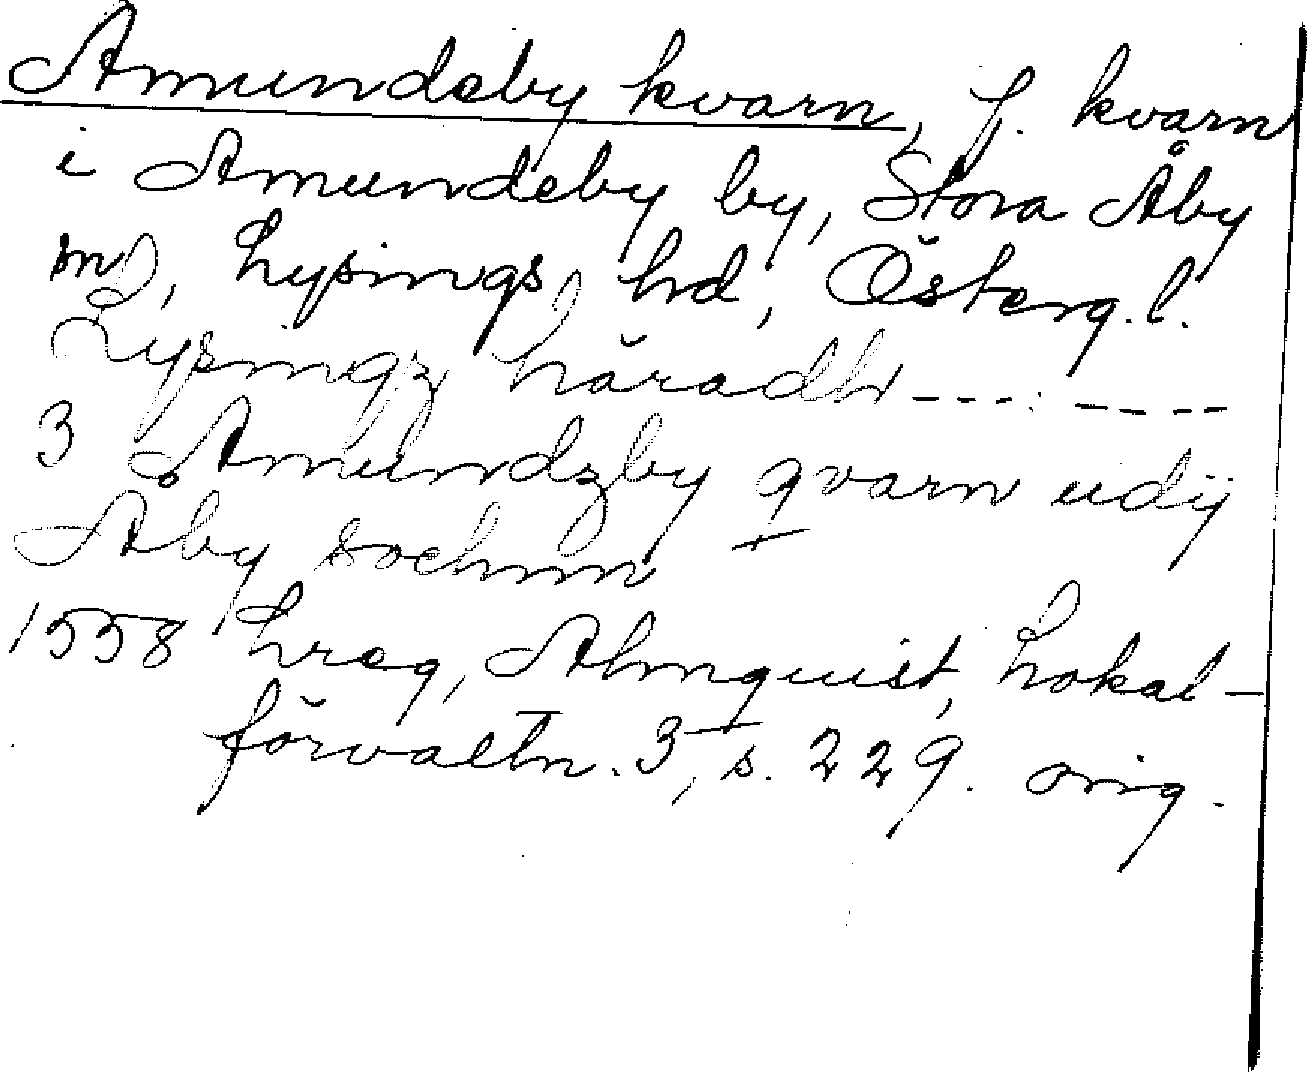 Amundeby kvarn, f. kvarn
i Amundeby by, Stora Åby
sn, Lysings hd, Österg.l.
Lysingz häradh ---- ----
3 Amundzby qvarn udij
Åby sochnn
1558 hreg, Almquist, Lokal-
förvaltn. 3, s. 229. orig.